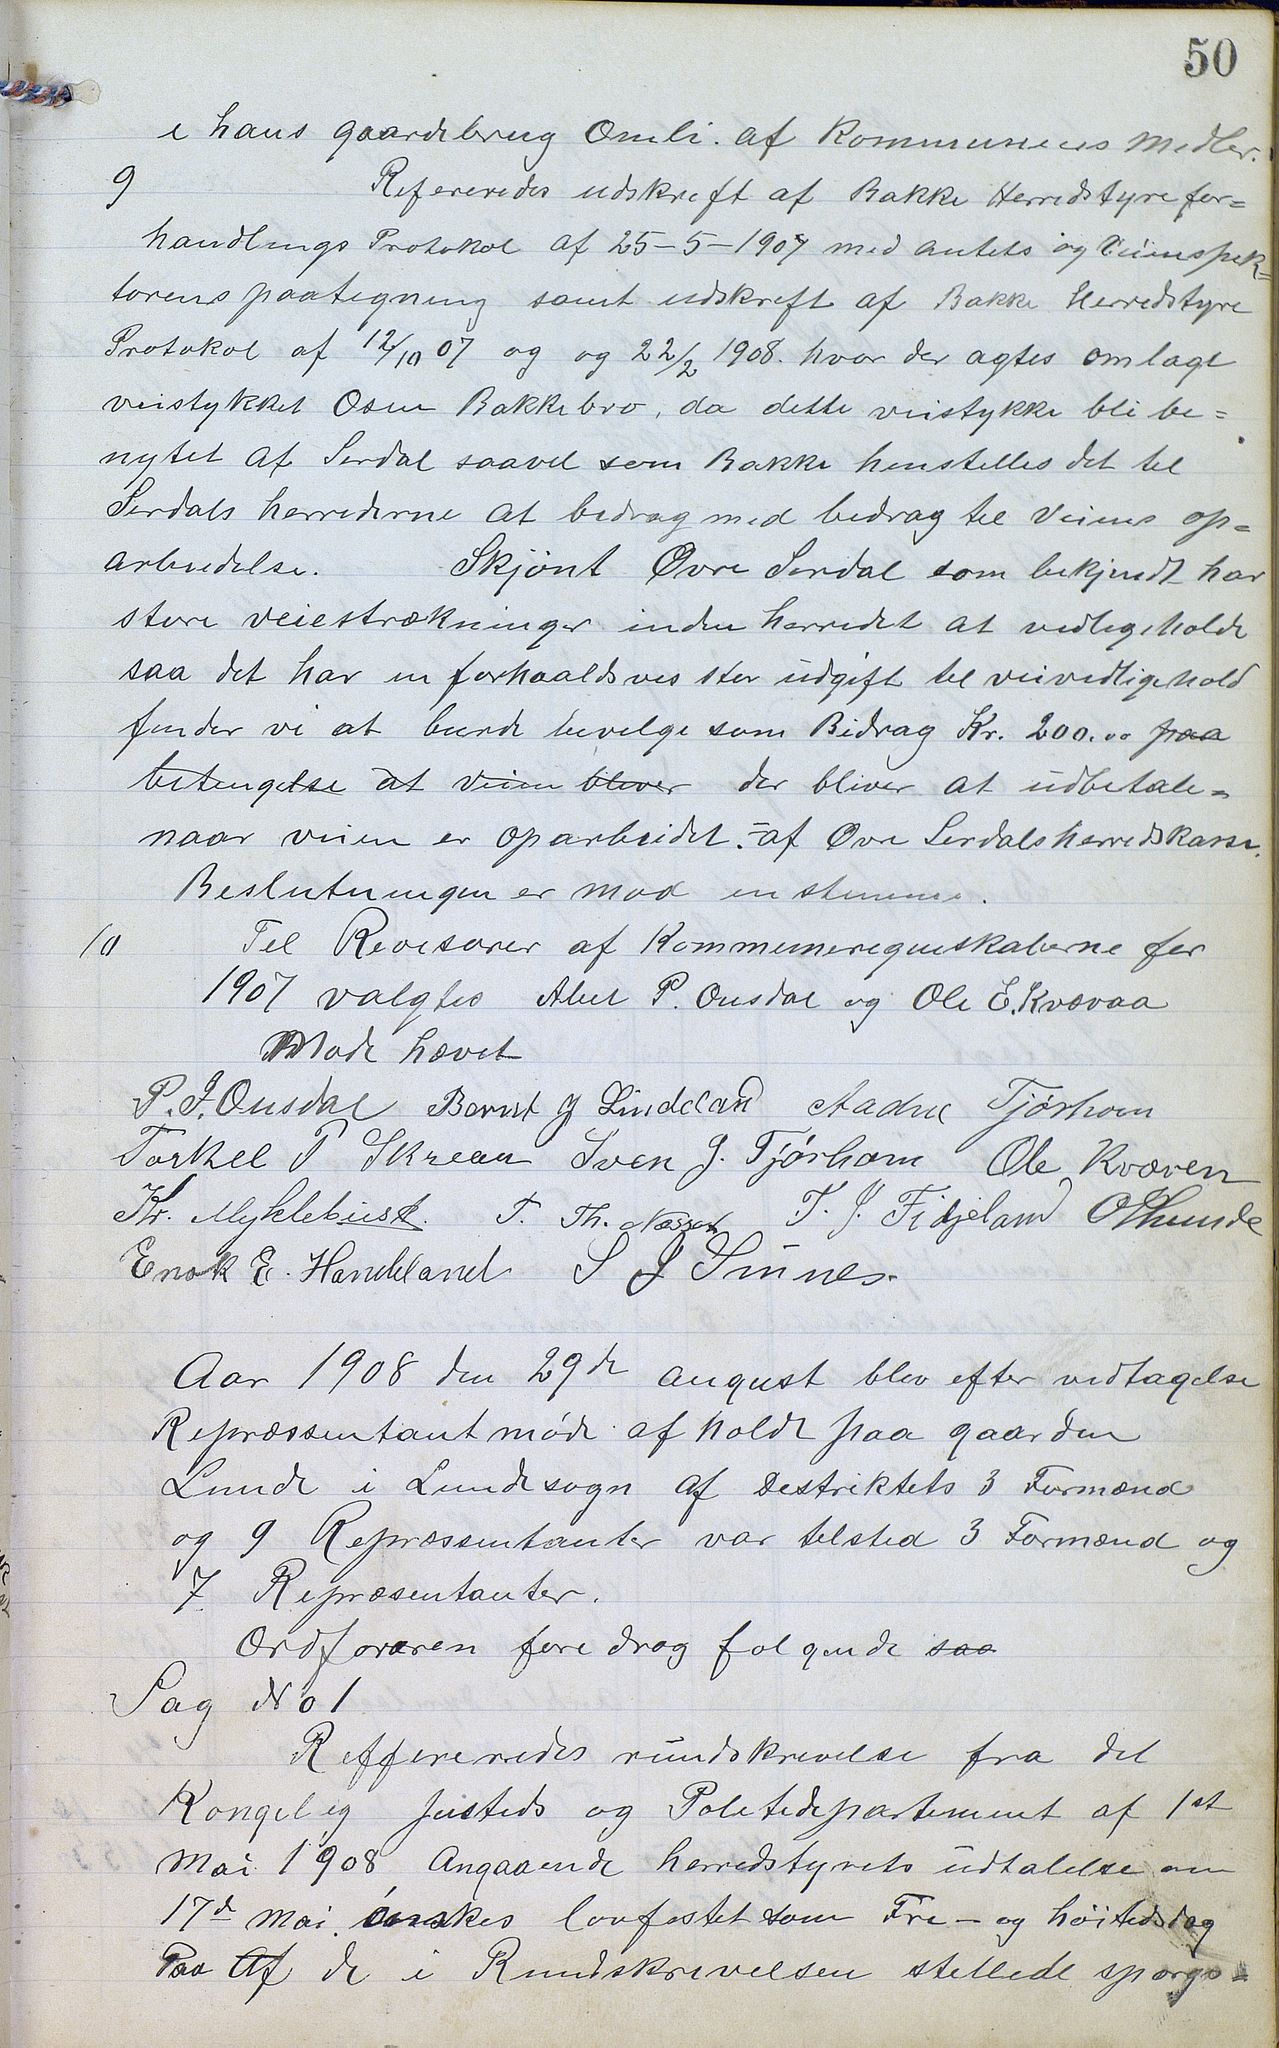 50
i hans gaardsbrug Omli. af Kommunens Midler.
9 Refereredes udskrift af Bakke Herredstyrefor=
handlings Protokol af 25-5-1907 med amtets og veiinspek=
torens paategning samt udskrift af Bakke Herredstyre
Protokol af 12/10 07 og og 22/2 1908. hvor der agtes omlagt
veistykket Osen Bakkebro, da dette veistykke bli be=
nytet af Serdal saavel som Bakke henstelles det til
Serdals herrederne at bedrag med bedrag til Veiens op=
arbeidelse. Skjønt Øvre Serdal som bekjendt har
store veiestrækninger inden herredet at vedligeholde
saa det har en forhaaldsves stor udgift til veivedligehold
finder vi at burde bevilge som Bidrag Kr. 200.00 paa
betengelse at veien bliver der bliver at udbetale=
naar veien er oparbeidet. - af Øvre Serdals herredskasse.
Beslutningen er mod en stemme.
10 Til Revisorer af Kommuneregnskaberne for
1907 valgtes Abel P. Ousdal og Ole E. Kvævaa
Møde hævet
P. J. Ousdal Bernt J Lindeland Aadne Tjørhom
Torkel P Skreaa Sven J. Tjørhom Ole Kvæven
Kr. Myklebust. T. Th. Næsset T. J. Fidjeland O Hunde
Enok E. Handeland S J Sinnes.
Aar 1908 den 29de august blev efter vedtagelse
Repræssentantmøde afholdt paa gaarden
Lunde i Lunde sogn af Destriktets 3 Formænd
og 9 Repræssentanter var telsted 3 Formænd og
7 Repræsentanter.
Ordføraren foredrog følgende saa
Sag No 1
Reffereredes rundskrevelse fra det
Kongelig Justeds og Politedepartement af 1st
Mai 1908 Angaaende herredstyrets udtalelse om
17de Mai ønskes lovfestet som Fri- og høitedsdag
Paa Af de i Rundskrevelsen stellede spørgs=